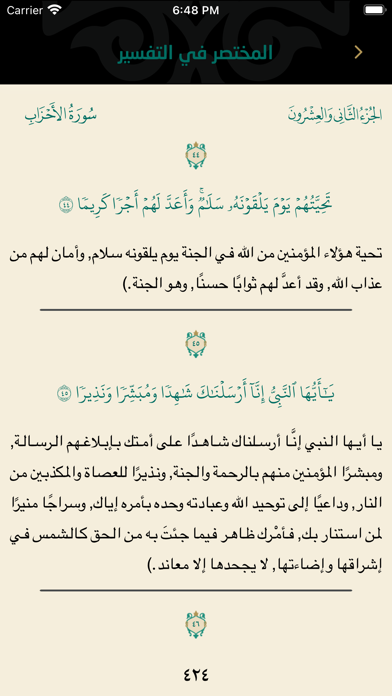 Carrier 6:48 PM
المختصر في التفسير
الجُزْءُ الثَّانِي وَالعِشْرُونَ سُورَةُ الأَحْزَابِ
٤٤
تَحِيَّتُهُمۡ يَوۡمَ يَلۡقَوۡنَهُۥ سَلَٰمٞۚ وَأَعَدَّ لَهُمۡ أَجۡرٗا كَرِيمٗا ٤٤
تحية هؤلاء المؤمنين من الله في الجنة يوم يلقونه سلام, وأمان لهم من
عذاب الله, وقد أعدَّ لهم ثوابًا حسنًا, وهو الجنة.)
٤٥
يَٰٓأَيُّهَا ٱلنَّبِيُّ إِنَّآ أَرۡسَلۡنَٰكَ شَٰهِدٗا وَمُبَشِّرٗا وَنَذِيرٗا ٤٥
يا أيها النبي إنَّا أرسلناك شاهدًا على أمتك بإبلاغهم الرسالة,
ومبشرًا المؤمنين منهم بالرحمة والجنة, ونذيرًا للعصاة والمكذبين من
النار, وداعيًا إلى توحيد الله وعبادته وحده بأمره إياك, وسراجًا منيرًا
لمن استنار بك, فأمْرك ظاهر فيما جئتَ به من الحق كالشمس في
إشراقها وإضاءتها, لا يجحدها إلا معاند .)
٤٦
٤٢٤